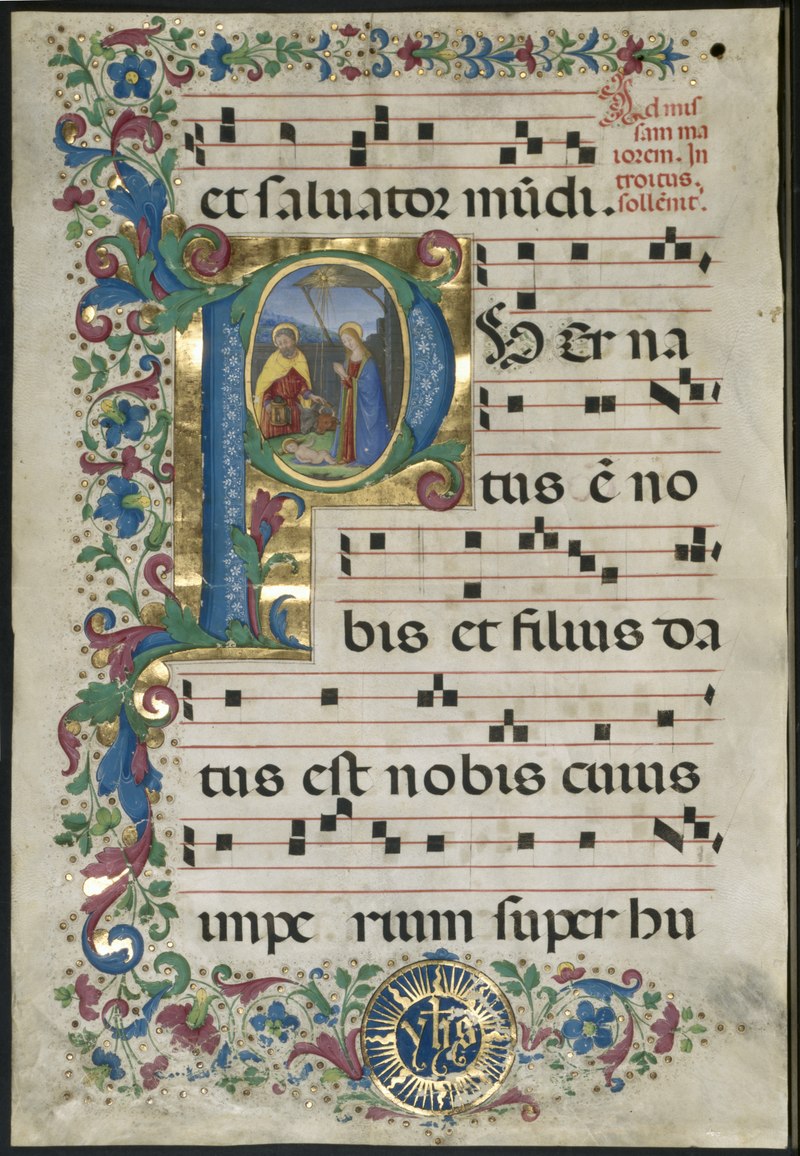 et saluator mūdi.
Ad mis
sam ma
iorem. In
troitus.
sollēnit.
PUEr na
tus ē no
bis et filius da
tus est nobis cuius
impe rium super hu
yhs